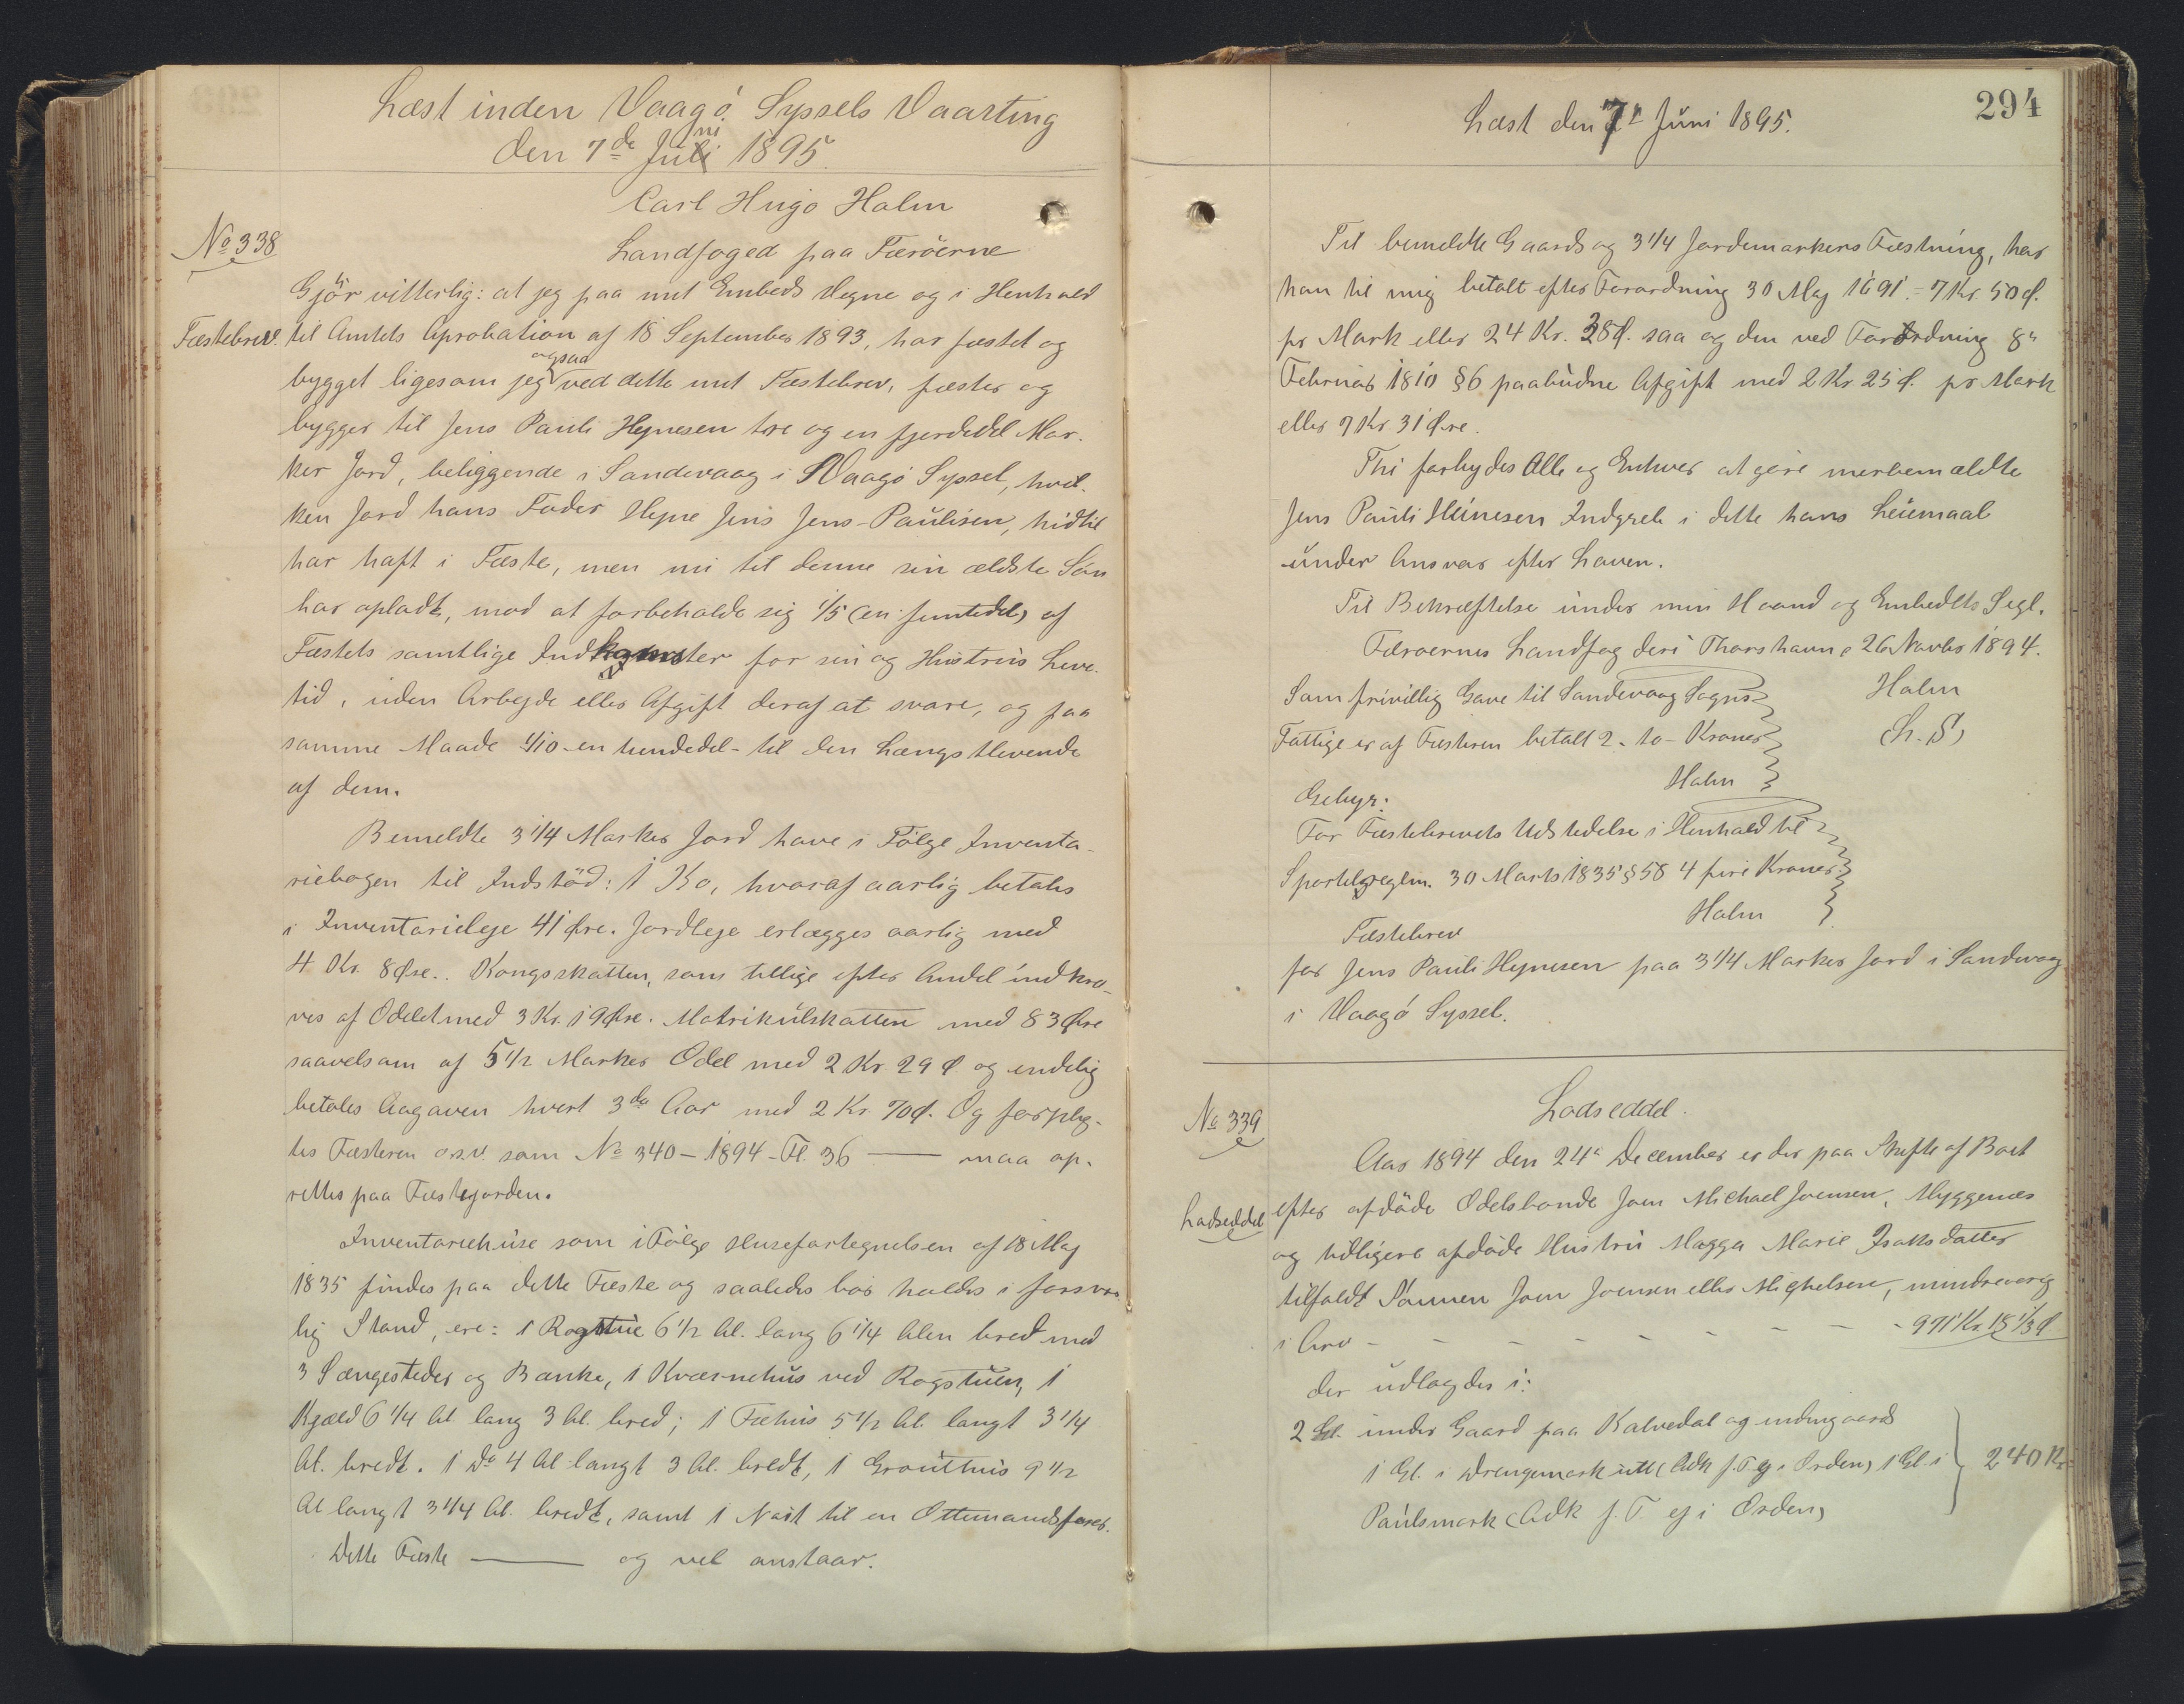 Læst inden Vaagö Syssels Vaarting
den 7de Juni 1895.
Carl Hugo Halm
No 338
Landfoged paa Færöerne
Gjör vitterlig: at jeg paa mit Embeds Vegne og i Henhold
Fæstebrev. til Amtets Aprobation af 18 September 1893, har fæstet og
bygget ligesom jeg ogsaa ved dette mit Fæstebrev, fæster og
bygger til Jens Pauli Hejnesen tre og en fjerdedel Mar-
ker Jord, beliggende i Sandevaag i Vaagö Syssel, hvil-
ken Jord hans Fader Hejne Jens Jens-Paulisen, hidtil
har haft i Fæste, men nu til denne sin ældste Sön
har opladt, mod at forbeholde sig 1/5 (en femtedel) af
Fæstets samtlige Indkomster for sin og Hustrus Leve-
tid, uden Arbejde eller Afgift deraf at svare, og paa
samme Maade 1/10 - en tiendedel - til den Længstlevende
af dem.
Bemeldte 3 1/4 Marker Jord have i Fölge Inventa-
riebogen til Indstöd: 1 Ko, hvoraf aarlig betales
i Inventarieleje 41 Øre. Jordleje erlægges aarlig med
4 Kr. 8 Øre.. Kongsskatten, som tillige efter Andel indkræ-
ves af Odelet med 3 Kr. 19 Øre. Matrikulskatten med 83 Øre
saavelsom af 5 1/2 Marker Odel med 2 Kr. 29 Ø. og endelig
betales Aagaven hvert 3die Aar med 2 Kr. 70 Ø. Og forplig-
tes Fæsteren o.s.v. som No 340 - 1894 - Fl. 36 —— maa op-
rettes paa Fæstejorden.
Inventariehuse som i Fölge Husefortegnelsen af 18 Maj
1835 findes paa dette Fæste og saaledes bör holdes i forsvar-
lig Stand, ere: 1 Rogstue 6 1/2 Al. lang 6 1/4 Alen bred med
3 Sængesteder og Bænke, 1 Kværnehus ved Rogstuen, 1
Kjæld 6 1/4 Al. lang 3 Al. bred; 1 Fæhus 5 1/2 Al. langt 3 1/4
Al. bredt. 1 Do 4 Al langt 3 Al. bredt, 1 Grouthus 9 1/2
Al langt 3 1/4 Al. bredt, samt 1 Nøst til en Ottemandsfarer.
Dette Fæste —— og vel anstaar.
294
Læst den 7de Juni 1895.
Til bemeldte Gaards og 3 1/4 Jordemarkers Fæstning, har
han til mig betalt efter Forordning 30 Maj 1691. - 7 Kr. 50 Ø.
pr Mark eller 24 Kr. 38 Ø. saa og den ved Forordning 8de
Februar 1810 §6 paabudne Afgift med 2 Kr 25 Ø. pr Mark
eller 7 Kr. 31 Øre.
Thi forbydes Alle og Enhver at göre merbemældte
Jens Pauli Heinesen Indgreb i dette hans Leiemaal
under Ansvar efter Loven.
Til Bekræftelse under min Haand og Embedets Segl.
Færoernes Landfogderi Thorshavn d 26 Novbr 1894.
Som frivillig Gave til Sandevaag Sogns Halm
Fattige er af Fæsteren betalt 2 - to - Kroner (L. S)
Halm
Gebyr:
For Fæstebrevets Udstedelse i Henhold til
Sportelreglm. 30 Marts 1835 § 58 4 fire Kroner.
Halm
Fæstebrev
for Jens Pauli Hejnesen paa 3 1/4 Marker Jord i Sandevaag
i Vaagö Syssel.
No 339
Lodseddel.
Aar 1894 den 24de December er der paa Skifte af Boet
Lodseddel efter afdöde Odelsbonde Joen Michael Joensen, Myggenæs
og tidligere afdöde Hustru Magga Marie Isaksdatter
tilfaldt Sønnen Joen Joensen eller Michelsen, mindreaarig
i Arv - - - - - - - - 971 Kr. 15 1/3 Ø
der udlagdes i:
2 Gl. under Gaard paa Kalvedal og undergaards
1 Gl. i Drengemark ust (Adk f. T ej i Orden) 1 Gl. i 240 Kr
Paulsmark (Adk f. T ej i Orden)